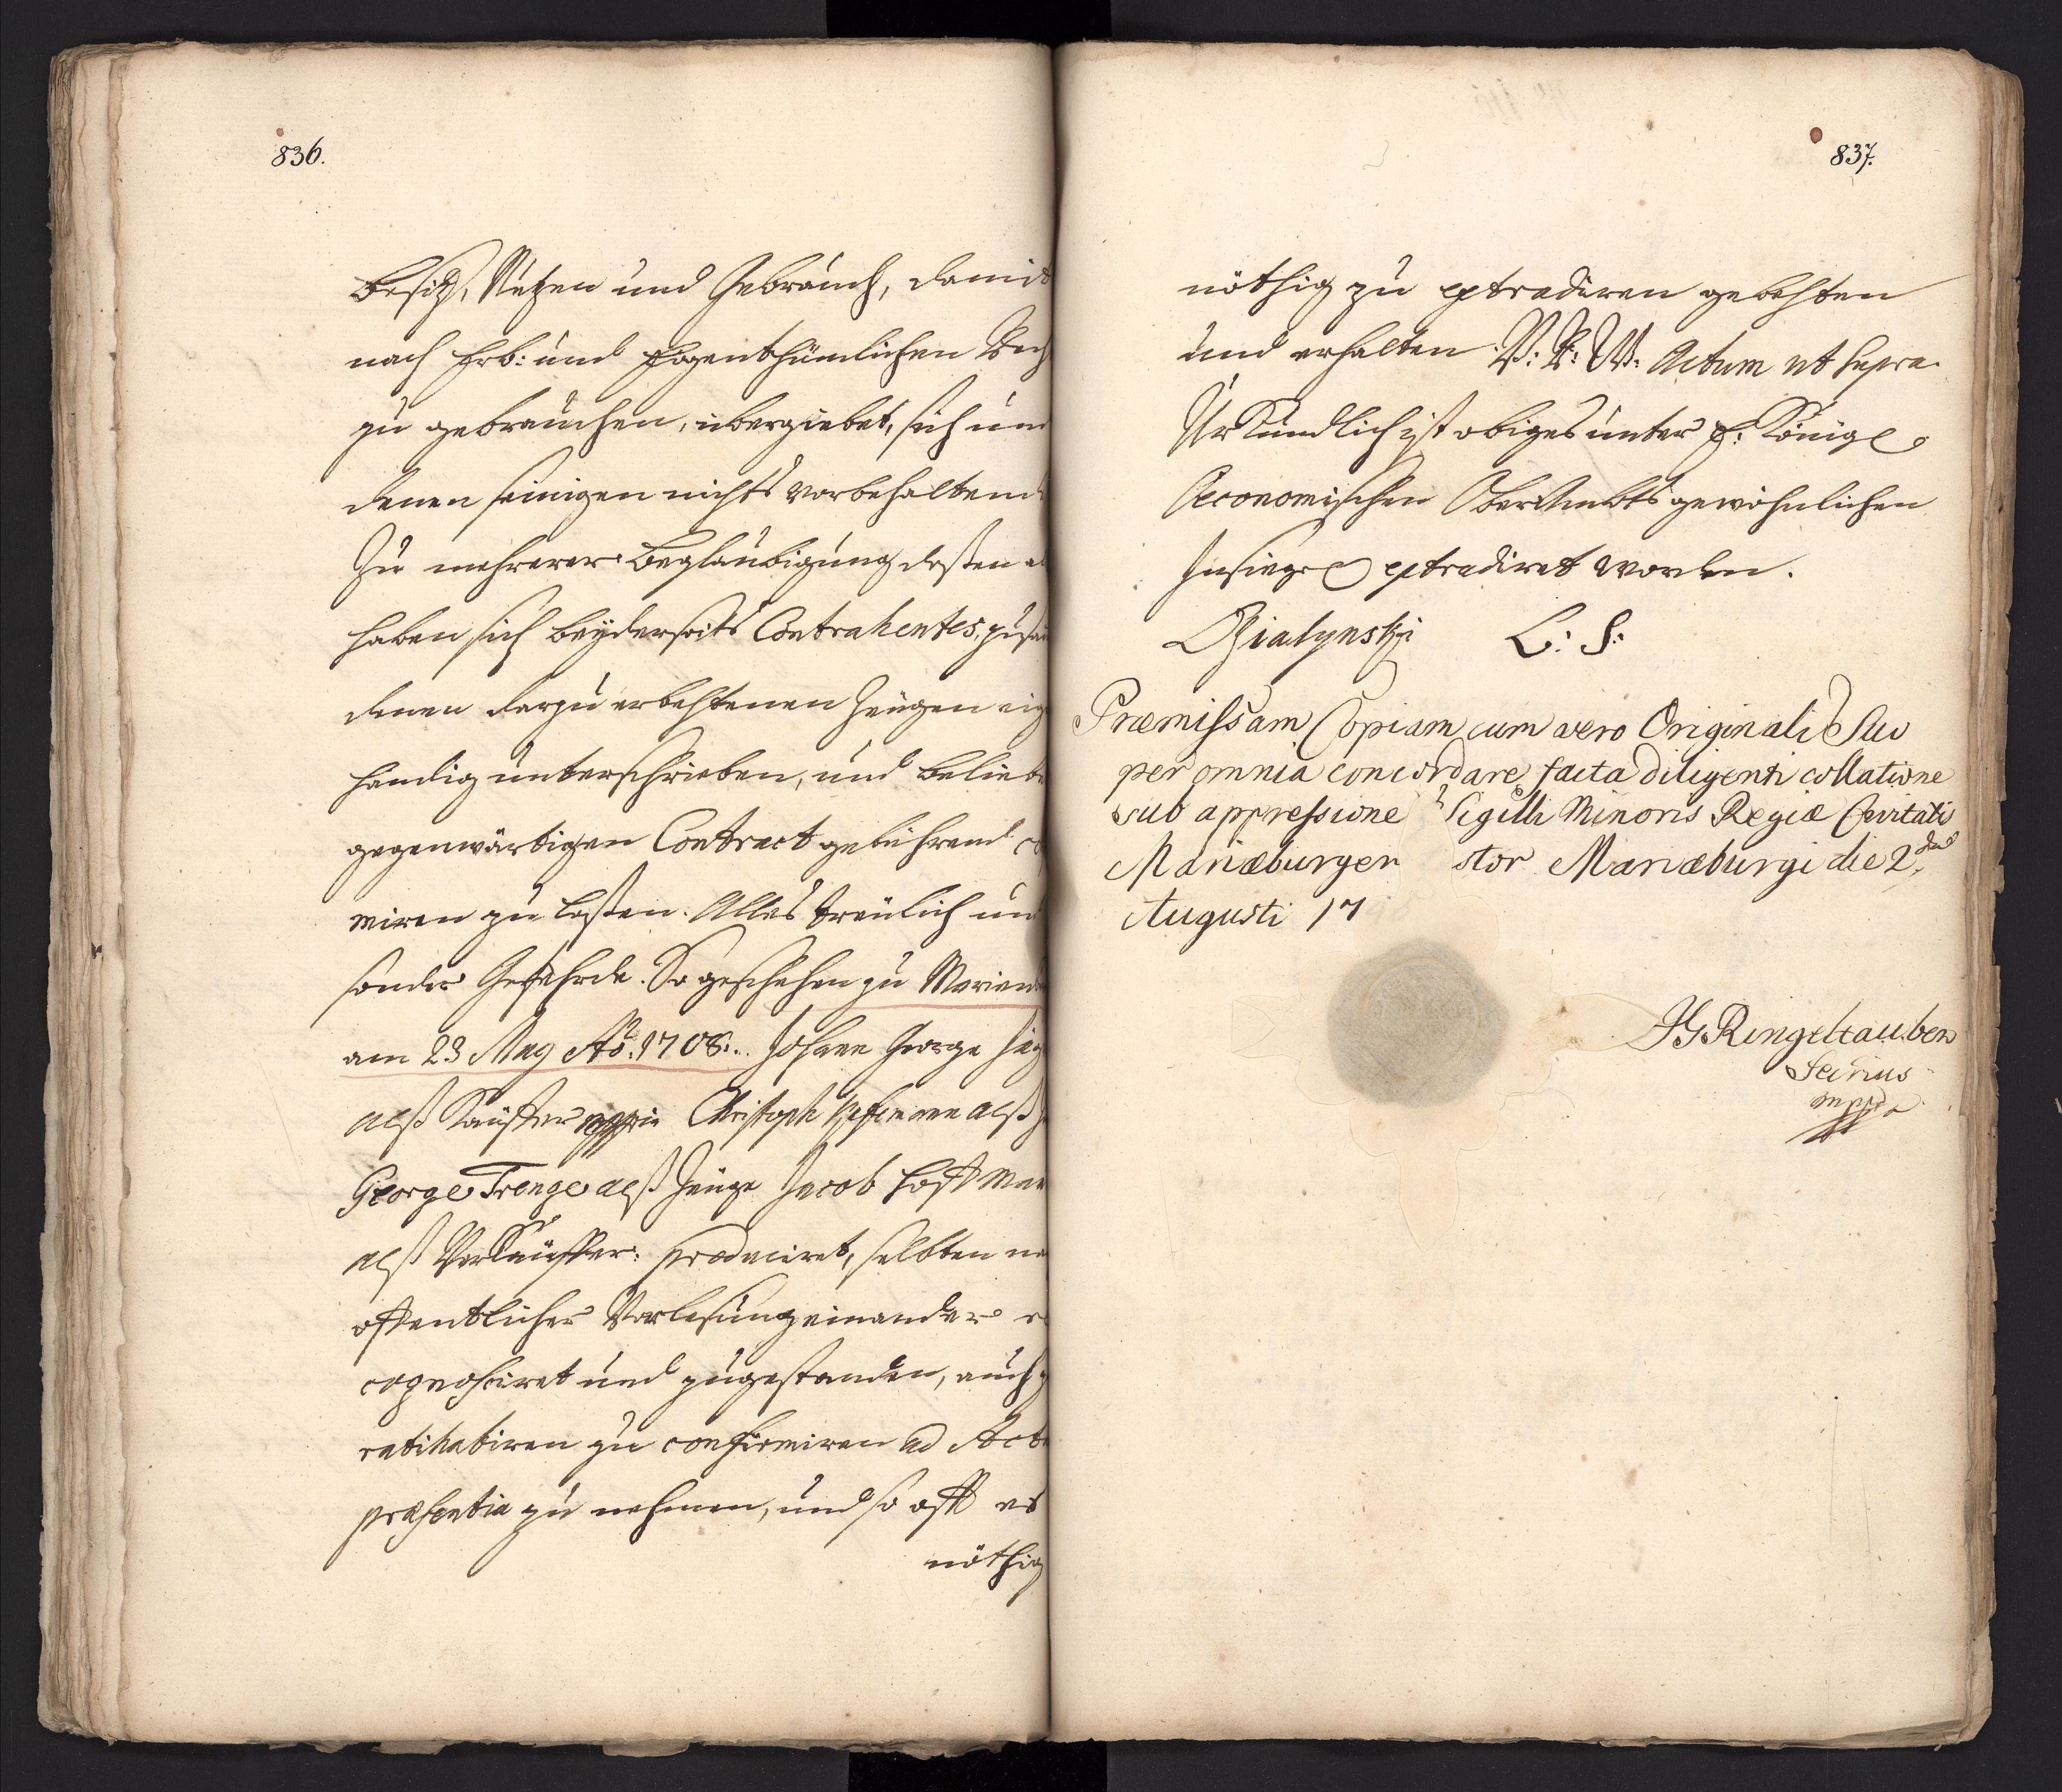 836.
Besitz, Nutzen und Gebrauch, damit
nach Erb: und Eigenthümlichen Rech
zu gebrauchen, übergiebet, sich und
denen seinigen nichts vorbehaltend
Zu mehrerer Beglaubigung deßen
haben sich beyderseits Contrahentes,
denen darzu erbehtenen Zeugen eig
händig unterschrieben, und beliebe
gegenwärtigen Contract gebührend
miren zu laßen. Alles treülich und
sonder Gefehrde. So geschehen zu Marien
am 23 May Aō. 1708. Johann George
alß Käuffer mppria Christoph alß
George Trenge alß Zeuge Jacob Hoffman
alß Verkäuffer: produciret, selbten
öffentlicher Vorlesung einander re
cognosciret und zugestanden, auch
ratihabiren zu confirmiren ad Acta
præsentia zu nehmen, und so offt es
nöthig
837.
nöthig zu extradiren gebehten
und erhalten. V: R: W: Actum ut supra.
Urkundlich ist obiges unter E: Königl
Oeconomischen OberAmbts gewöhnlichen
Insiegel extradiret worden.
Dzialynski L: S:
Præmissam Copiam cum vero Originali Suo
per omnia concordare, facta diligenti collatione
sub appressione Sigilli Minoris Regiæ Civitatis
Mariæburgen stor Mariæburgi die 2.
Augusti 17
JG Ringeltauben
Secrius
mppa